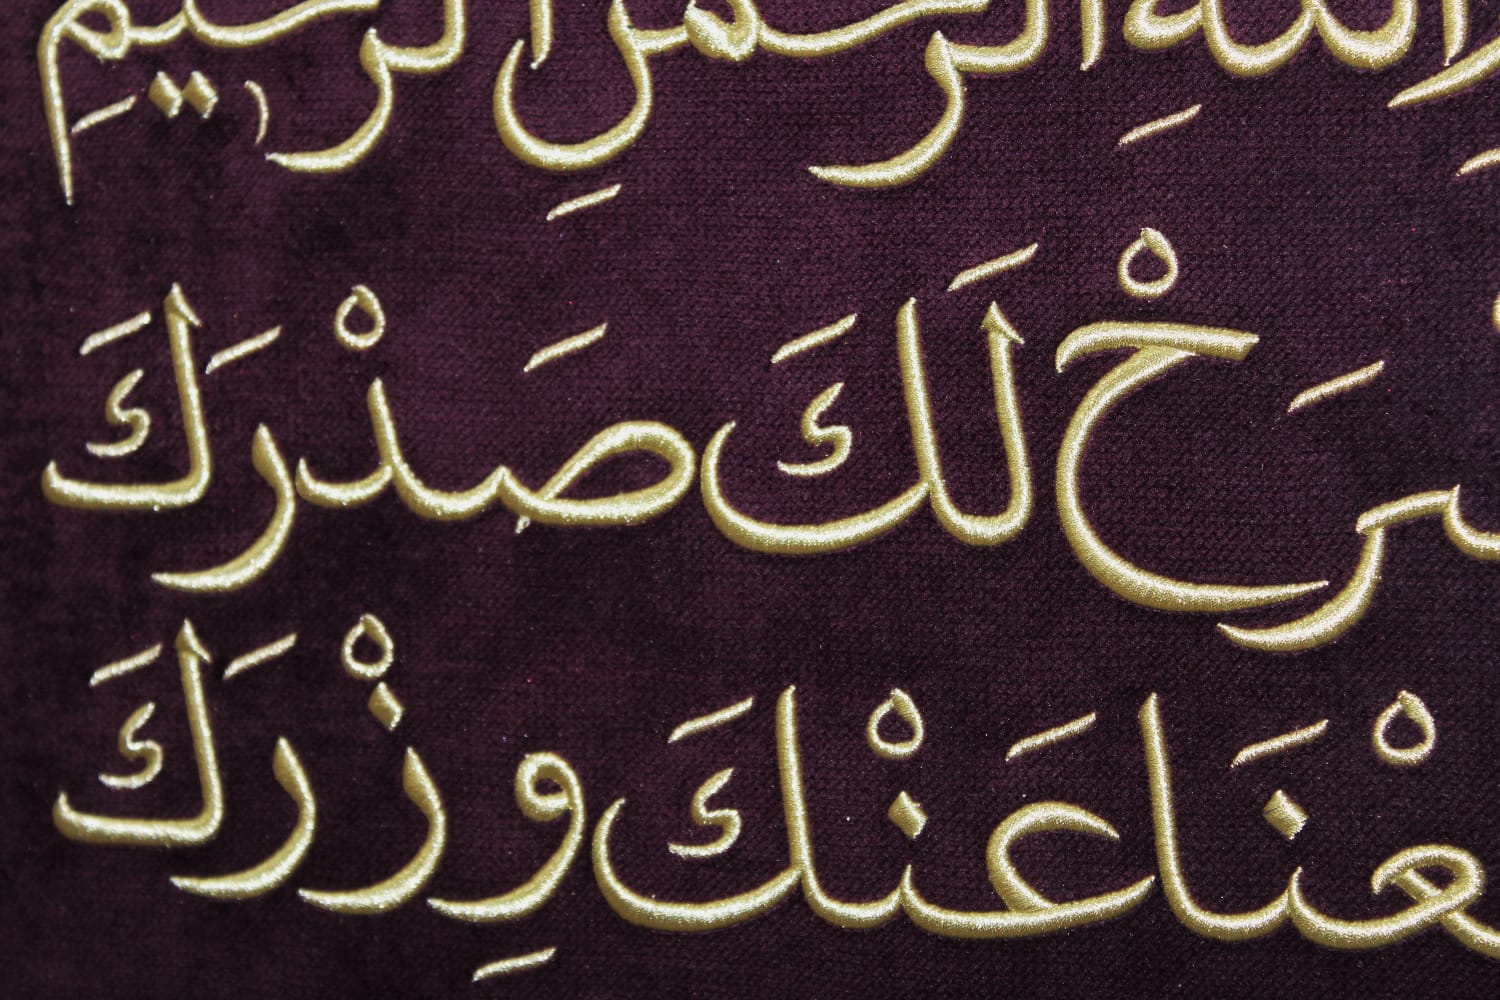 اللهِ الرحمنِ الرحيمِ
ـشرَحْ لَكَ صَدْرَكَ
ـعْنَا عَنْكَ وِزْرَكَ